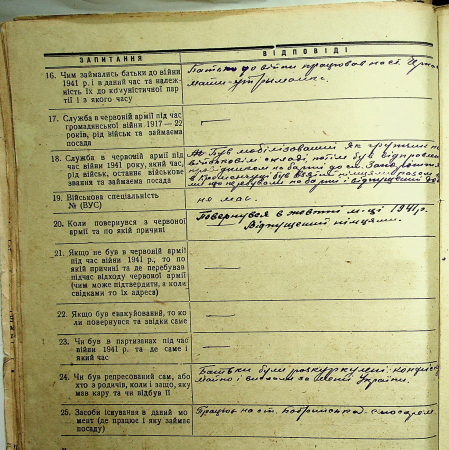 ЗАПИТАННЯ ВІДПОВІДІ
16. Чим займались батьки до війни
1941 р. і в даний час та належ-
ність їх до комуністичної пар
тії і з якого часу
Батько до війни працював на ст.
мати-утрыманка.
17. Служба в червоній армії під час
громадянської війни 1917—22
років, рід військ та займаєма
посада
18. Служба в червоній армії під
час війни 1941 року, який час,
рід військ, останнє військове
звання та займаєма посада
Був мобілізований як
потім був відправлен
19. Військова спеціальність
№ (ВУС)
не має.
20. Коли повернувся з червоної
армії та по якій причині
Повернувся в жовтні м-ці 1941 р.
Відпущений німцями.
21. Якщо не був в червоній армії
під час війни 1941 р., то по
якій причині та де перебував
підчас відходу червоної армії
(чим може підтвердити, а коли
свідками то їх адреса)
22. Якщо був евакуйований, то ко
ли повернувся та звідки саме
23. Чи був в партизанах під час
війни 1941 р. та де саме і
який час
24. Чи був репресований сам, або
хто з родичів, коли і защо, яку
мав кару та чи відбув її
Батьки були розкуркулені
майно і України.
25. Засоби існування в даний мо
мент (де працює і яку займає
посаду)
Працює на ст. Бобринська